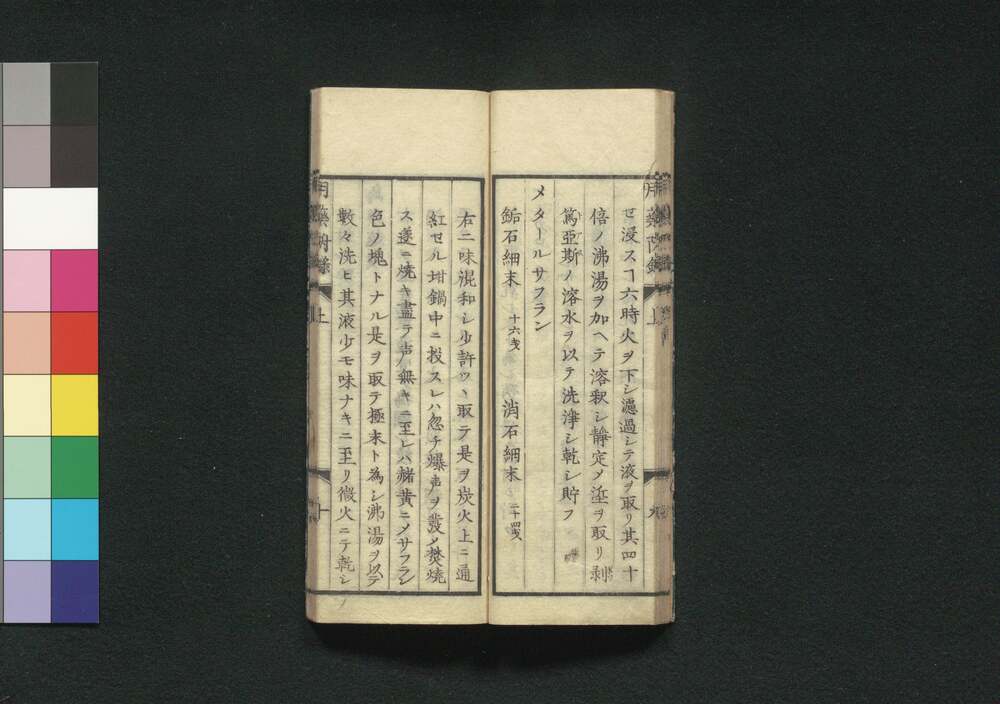 セ浸スヿ六時火ヲ下シ濾過シテ液ヲ取リ其四十
倍ノ沸湯ヲ加ヘテ溶釈シ静定メ滓ヲ取リ剥
篤亜斯ノ溶水ヲ以テ洗浄シ乾シ貯フ
メタールサフラン
鉐石細末 十六戔 消石細末 二十四戔
右二味混和シ少許ツヽ取テ是ヲ炭火上ニ通
紅セル坩鍋中ニ投スレハ忽チ爆声ヲ發メ焚焼
ス遂ニ焼キ盡テ声無キニ至レハ赭黄ニメサフラン
色ノ塊トナル是ヲ取テ極末ト為シ沸湯ヲ以テ
數々洗ヒ其液少モ味ナキニ至リ微火ニテ乾シ
上
十